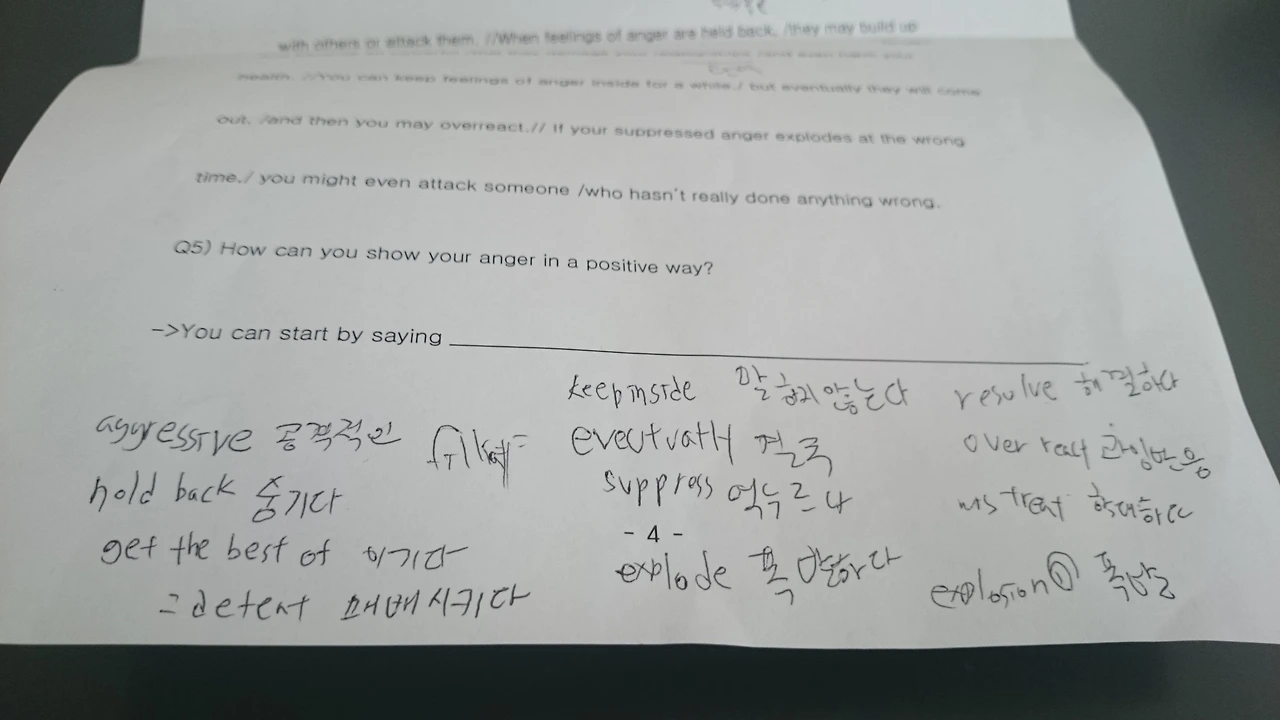 with others or attack them. //When feelings of anger are held back, /they may build up
health. //You can keep feelings of anger inside for a while,/ but eventually they will come
out, /and then you may overreact.// If your suppressed anger explodes at the wrong
time,/ you might even attack someone /who hasn't really done anything wrong.
Q5) How can you show your anger in a positive way?
->You can start by saying
aggressive 공격적인
hold back 숨기다
get the best of 이기다
= defeat 패배시키다
keep inside 말하지 않는다
결국
suppress 억누르다
- 4 -
explode 폭발하다
resolve 해결하다
over react 과잉반응
mistreat 학대하다
explosion 폭발